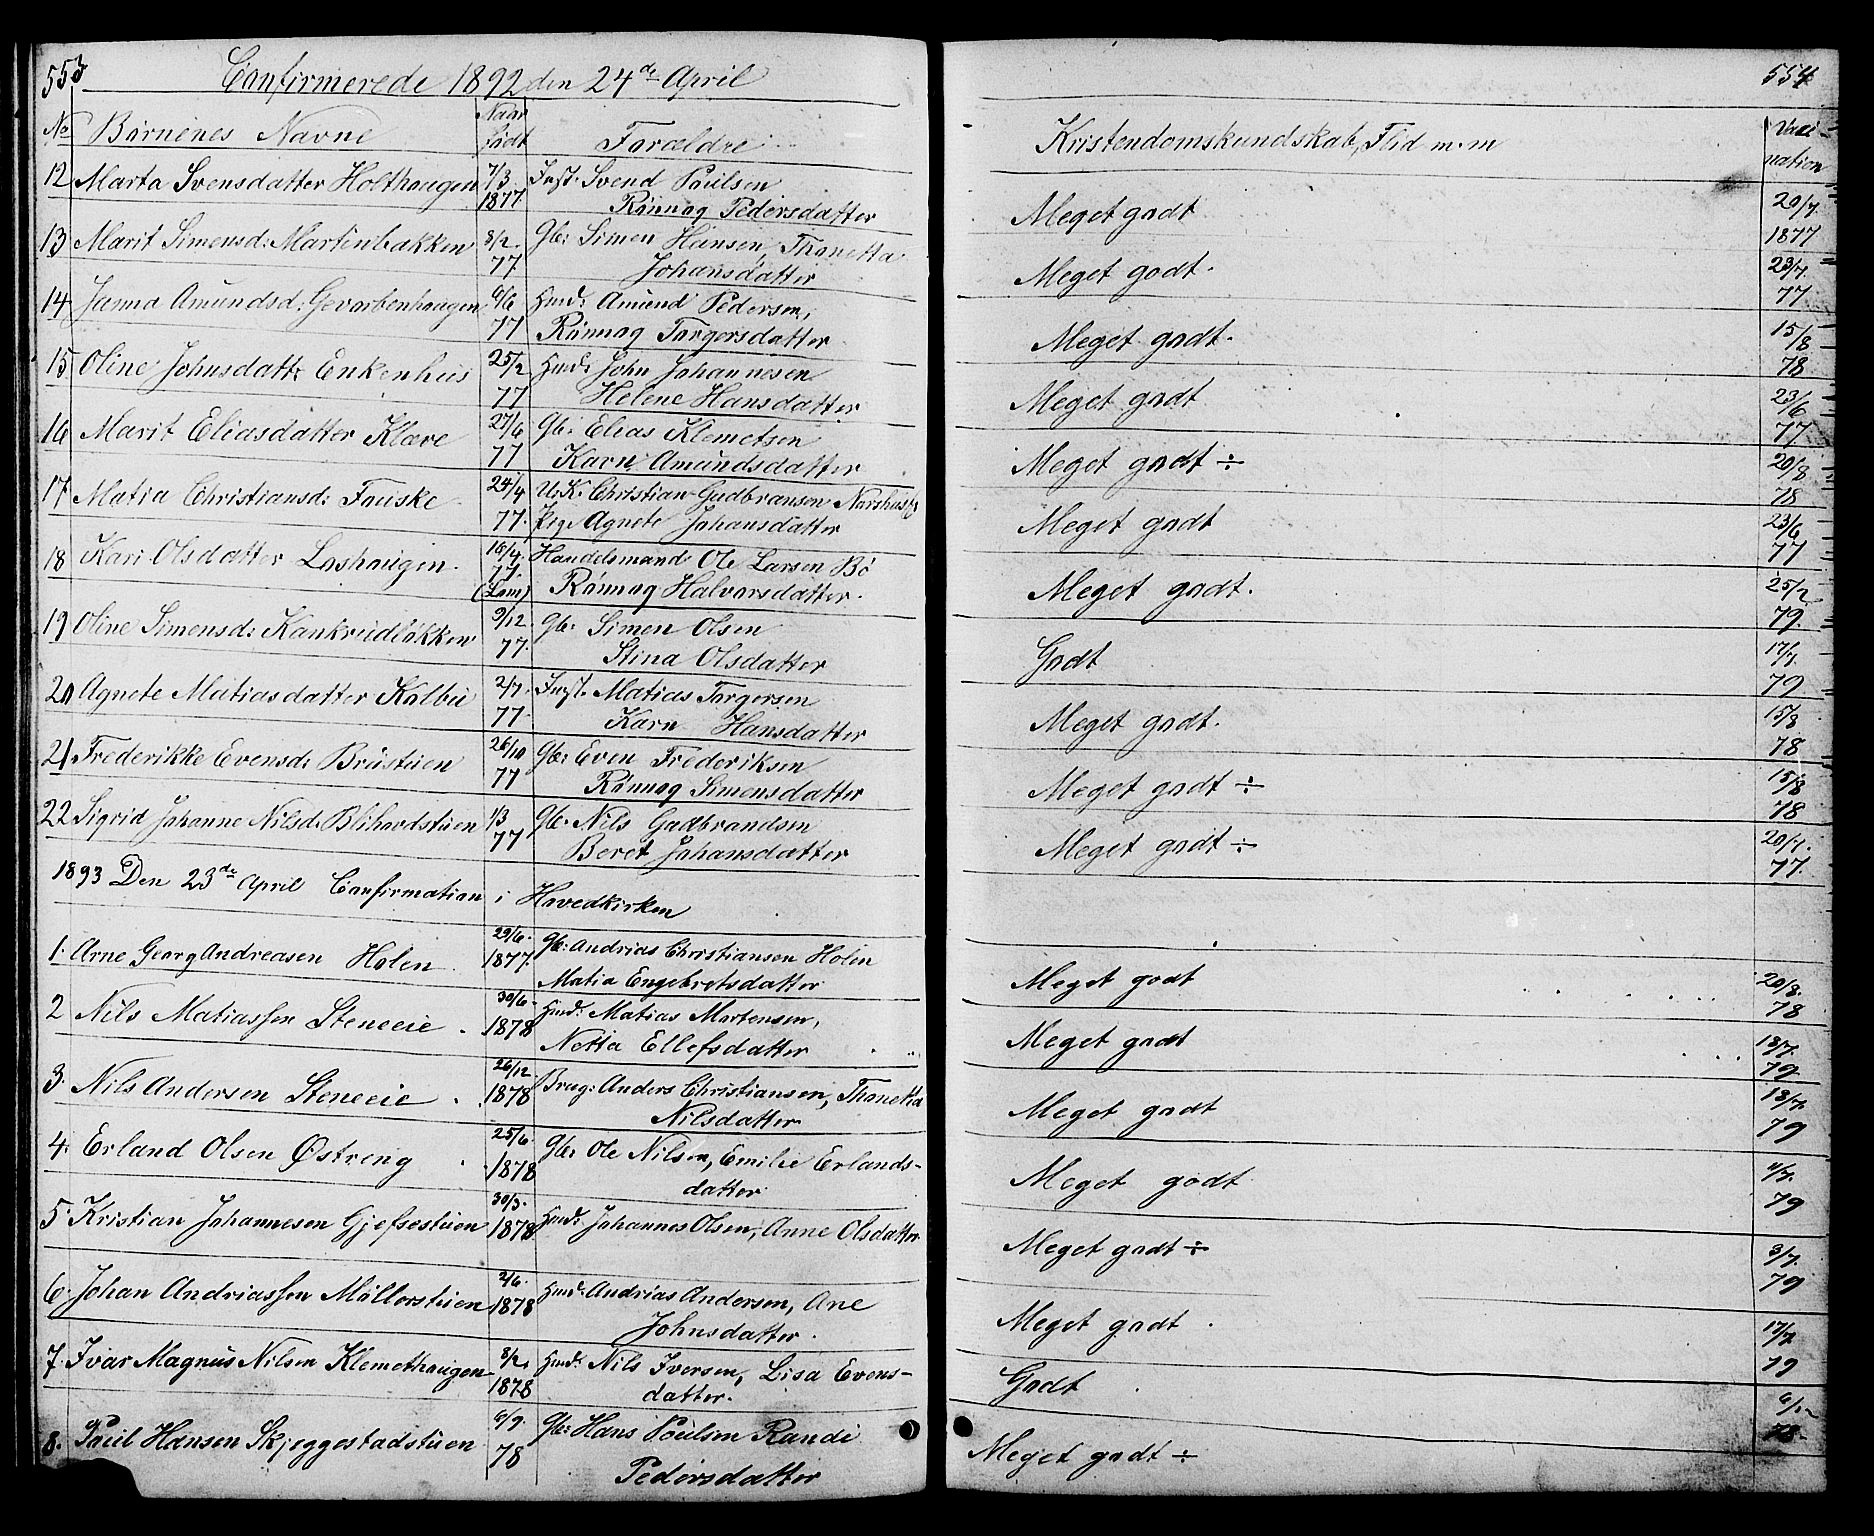 553 Confirmerede 1892 den 24de April
No Børnenes Navne Naar født Forældre
12 Marta Svensdatter Holthaugen 7/3 1877 Inst. Svend Poulsen
Rönnog Pedersdatter
13 Marit Simensd: Martinbakken 8/2. 77 Gbr. Simen Hansen, Thonetta
Johansdatter
14 Janna Amundsd: Gevarbenhaugen 6/6 77 Hmd: Amund Pedersen,
Rönnog Torgersdatter
15 Oline Johnsdattr Enkenhus 25/2 77 Hmd: John Johannesen
Helene Hansdatter
16 Marit Eliasdatter Klæve 27/6 77 Gbr. Elias Klemetsen
Karn Amundsdatter
17 Matia Christiansd: Fauske 24/4 77. U.K. Christian Gudbransen
Pig. Agnete Johansdatter
18 Kari Olsdatter Loshaugen 16/4. 77. (Lom) Handelsmand Ole Larsen Bö
Rönnog Halvorsdatter.
19 Oline Simensd: Kankrudbakken 9/12. 77. Gbr. Simen Olsen
Stina Olsdatter
20 Agnete Matiasdatter Kolbu 2/7. 77 Inst. Matias Torgersen
Karn Hansdatter
21. Frederikke Evensd: Brustuen 26/10 77 Gbr: Even Frederiksen
Rönnog Simensdatter
22 Sigrid Johanne Nilsd: Blihovdstuen 1/3 77 Gbr. Nils Gudbrandsen
Beret Johansdatter
1893 Den 23de April Confirmation i Hovedkirken
1. Arne Georg Andreasen Holen 29/6. 1877. Gbr: Andrias Christiansen Holen
Matia Engebretsdatter
2 Nils Matiassen Steneeie 30/6. 1878 Hmd: Matias Mortensen,
Netta Ellefsdatter
3. Nils Andersen Steneeie 26/12. 1878 Brug: Anders Christiansen, Thonetta
Nilsdatter
4. Erland Olsen Østreng 25/6. 1878 Gbr: Ole Nilsen, Emilie Erlands-
datter
5. Kristian Johannesen Gjefsestuen 30/3. 1878 Hmd: Johannes Olsen, Anne Olsdatter
6. Johan Andriassen Möllerstuen 2/6. 1878 Hmd. Andrias Andersen, Ane
Johnsdatter.
7. Ivar Magnus Nilsen Klemethaugen 8/2. 1878 Hmd: Nils Iversen, Lisa Evens-
datter.
8. Poul Hansen Skjeggestadstuen 6/9. 78 Gbr: Hans Poulsen Randi
Pedersdatter
554
Kristendomskundskab, Flid m.m Vaci-
nation
Meget godt 20/7. 1877
Meget godt. 23/7. 77
Meget godt. 15/8 78
Meget godt 23/6 77
Meget godt ÷ 20/8 78
Meget godt 23/6 77
Meget godt. 25/2 79.
Godt 17/7. 79
Meget godt. 15/8 78
Meget godt ÷ 15/8 78
Meget godt ÷ 20/7. 77.
Meget godt 20/8. 78
Meget godt 18/7. 79
Meget godt 18/7. 79
Meget godt 4/7. 79
Meget godt ÷ 3/7. 79
Meget godt. 17/7 79
Godt
Meget godt ÷